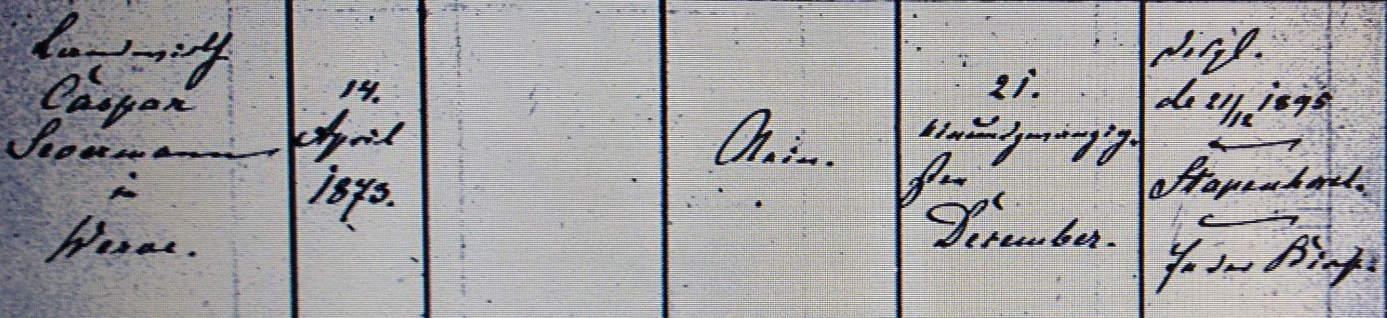 Landwirth
Caspar
in
Werne.
14.
April
1873.
Nein.
21.
einundzwanzig-
sten
Dezember.
Dispf.
de 21/12 1895
Stapenhorst.
In der Kirche.